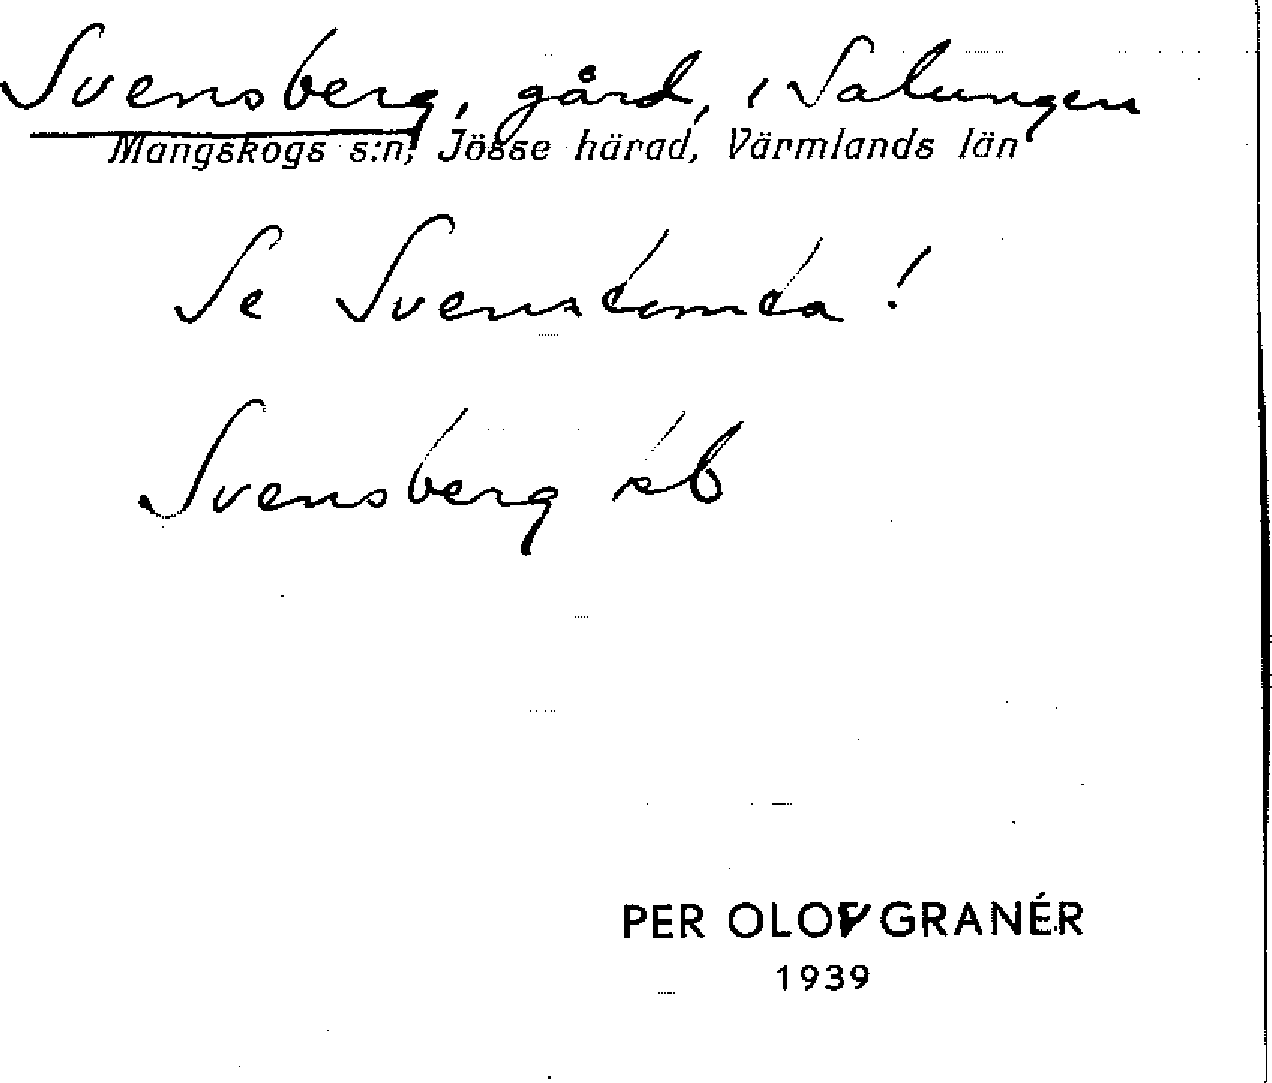 Svensberg, gård, i Salungen
Mangskogs s:n, Jösse härad, Värmlands län
Se Svenstomta!
Svensberg sb
PER OLOV GRANÉR
1939